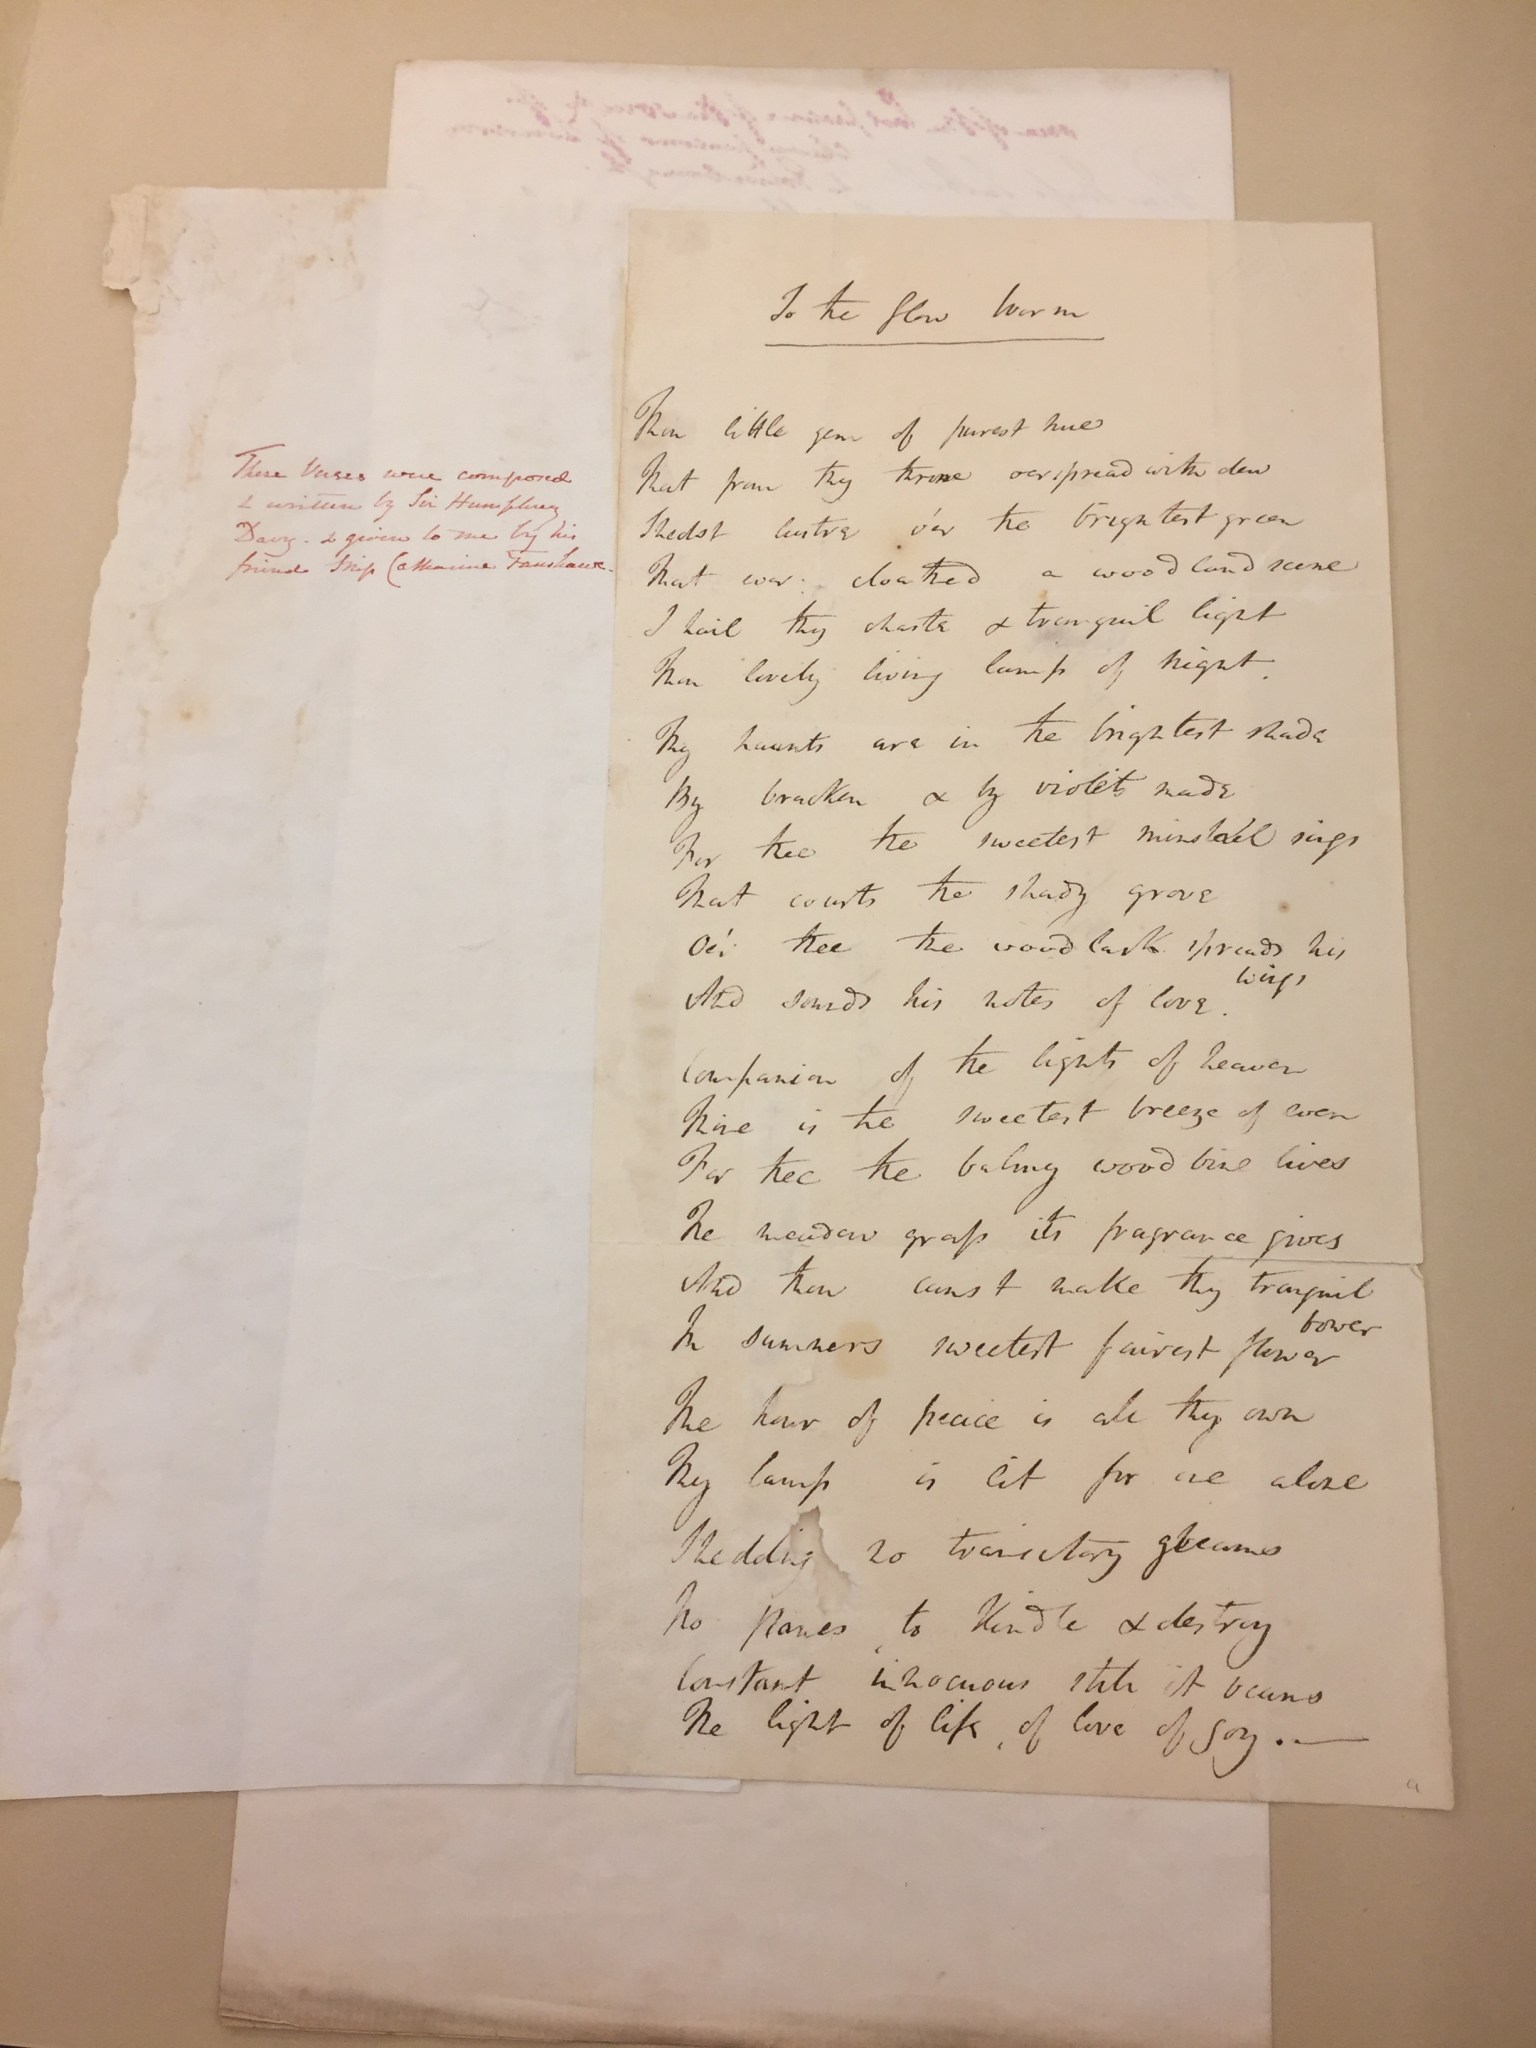 To the Glow Worm
Thou little gem of purest hue
That from thy throne oerspread with dew
Shedst lustre o'er the brightest green
That ever cloathed a woodland scene
I hail thy chaste & tranquil light
Thou lovely living lamp of night.
Thy haunts are in the brightest shade
By bracken & by violets made
For thee the sweetest minstrel sings
That courts the shady grove
Oe'r thee the woodlark spreads his
wings
And sounds his notes of love.
Companion of the lights of heaven
Thine is the sweetest breeze of even
For thee the balmy woodbine lives
The meadow grass its fragrance gives
And thou canst make thy tranquil
bower
In summers sweetest fairest flower
The hour of peace is all thy own
Thy lamp is lit for one alone
Shedding no transitory gleams
No flames to kindle & destroy
Constant innocuous still it beams
The light of life, of love of joy.—
These Verses were composed
& written by Sir Humphrey
Davy. & given to me by his
friend Miss Catharine Fanshawe.
a